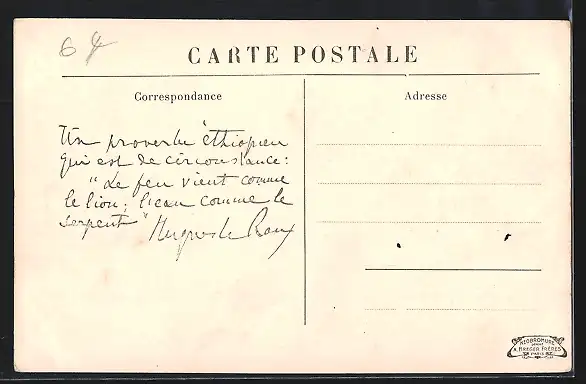 64
CARTE POSTALE
Correspondance
Adresse
Un proverbe éthiopien
qui est de circonstance :
"Le feu vient comme
le lion ; l'eau comme le
serpent" Hugues Le Roux
A. BREGER FRÈRES
PARIS